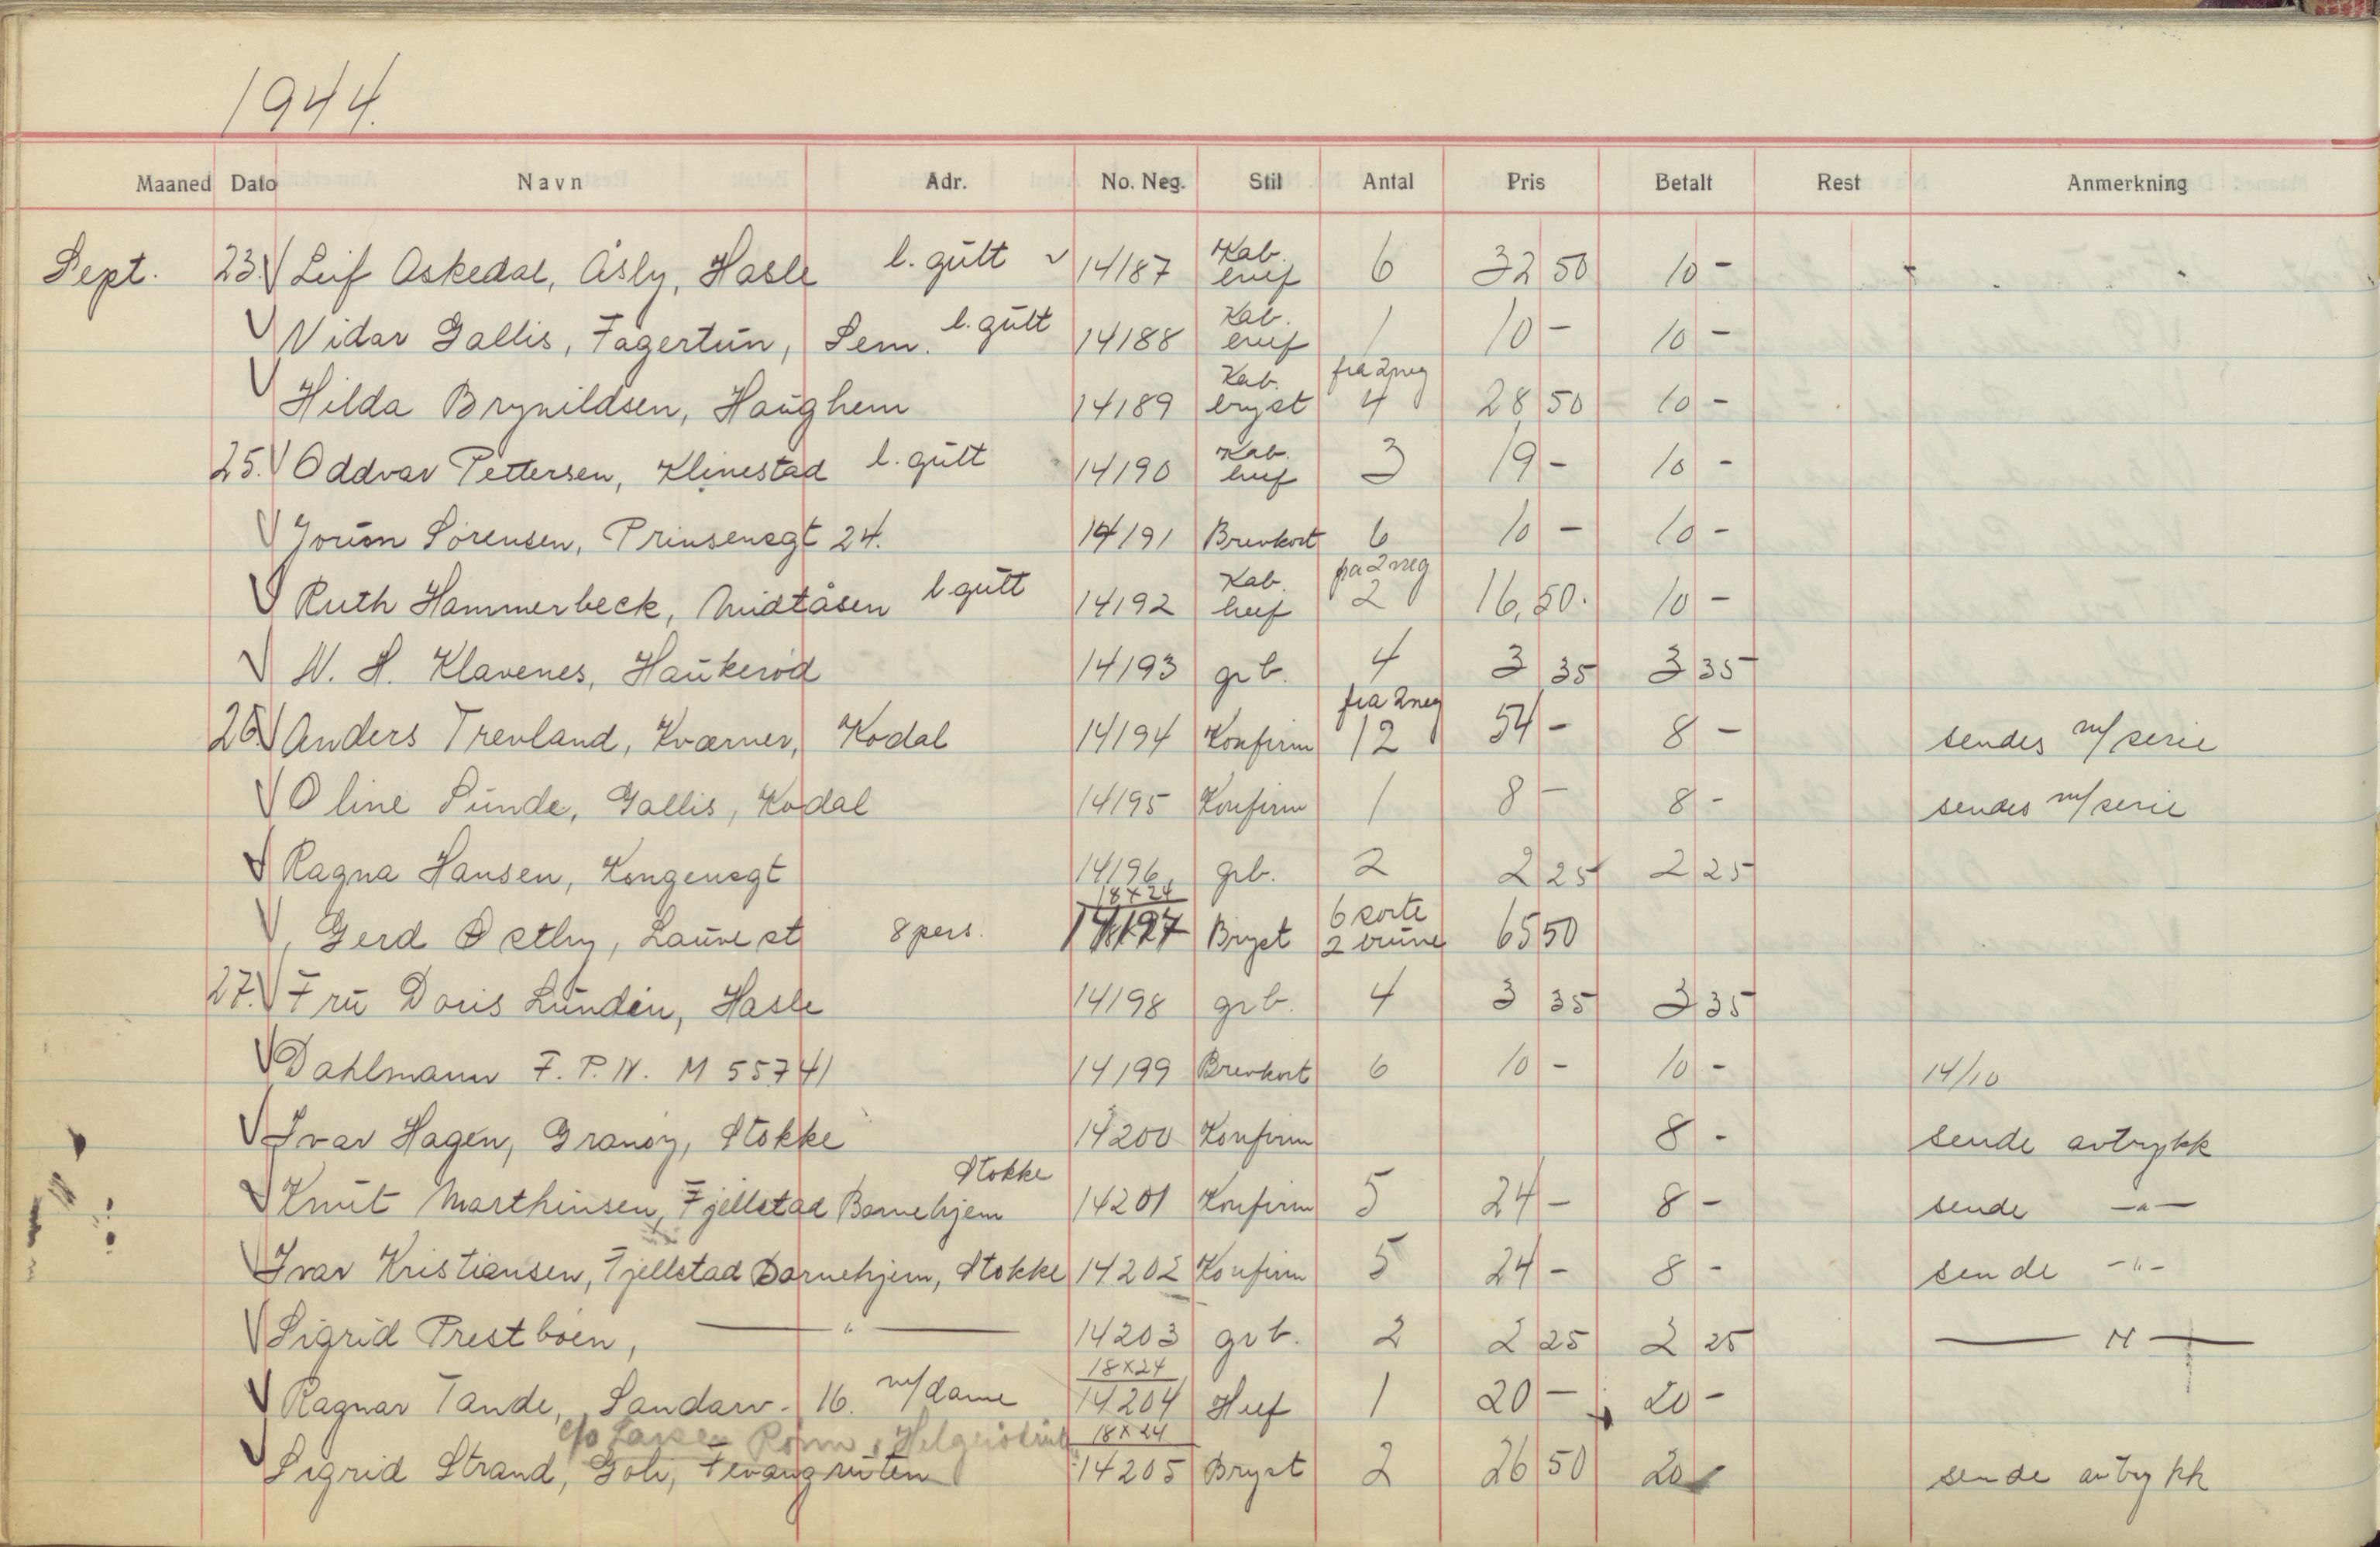 1944.
Maaned Dato Navn Adr. No. Neg. Stil Antal Pris Betalt Rest Anmerkning
Sept. 23. Leif Askedal, Åsly, Hasle l. gutt 14187 Kab. huf 6 32 50 10 -
Vidar Gallis, Fagertun, Sem. l. gutt 14188 Kab. huf 1 10 - 10 -
Hilda Brynildsen, Haughem 14189 Kab. bryst fra 2 neg 4 28 50 10 -
25. Oddvar Pettersen, Klinestad l. gutt 14190 Kab. huf 3 19 - 10 -
Jorun Sørensen, Prinsensgt 24. 14191 Brevkort 6 10 - 10 -
Ruth Hammerbeck, Midtåsen l gutt 14192 Kab. huf fra 2 neg 2 16,50. 10 -
N. H. Klavenes, Haukerød 14193 grb. 4 3 35 3 35
26. Anders Trevland, Kværner, Kodal 14194 Konfirm fra 2 neg 12 54 - 8 - sendes m/serie
Oline Sunde, Gallis, Kodal 14195 Konfirm 1 8 - 8 - sendes m/serie
Ragna Hansen, Kongensgt 14196 grb. 2 2 25 2 25
Gerd Østby, Lauve st 8 pers. 18x24 14197 Bryst 6 sorte 2 brune 65 50
27. Fru Doris Lundin, Hasle 14198 grb. 4 3 35 3 35
Dahlmann F. P. N. M 55741 14199 Brevkort 6 10 - 10 - 14/10
Ivar Hagen, Granøy, Stokke 14200 Konfirm 8 - sende avtrykk
Knut Marthinsen, Fjellstad Barnehjem Stokke 14201 Konfirm 5 24 - 8 - sende -"-
Ivar Kristiansen, Fjellstad Barnehjem, Stokke 14202 Konfirm 5 24 - 8 - sende -"-
Sigrid Prestbøen, -"- 14203 grb. 2 2 25 2 25 -"-
Ragnar Tande, Sandarv. 16. m/dame 18x24 14204 Huf 1 20 - 20 -
c/o
Sigrid Strand, Goli, Tevangruten 18x24 14205 Bryst 2 26 50 20 sende avtrykk